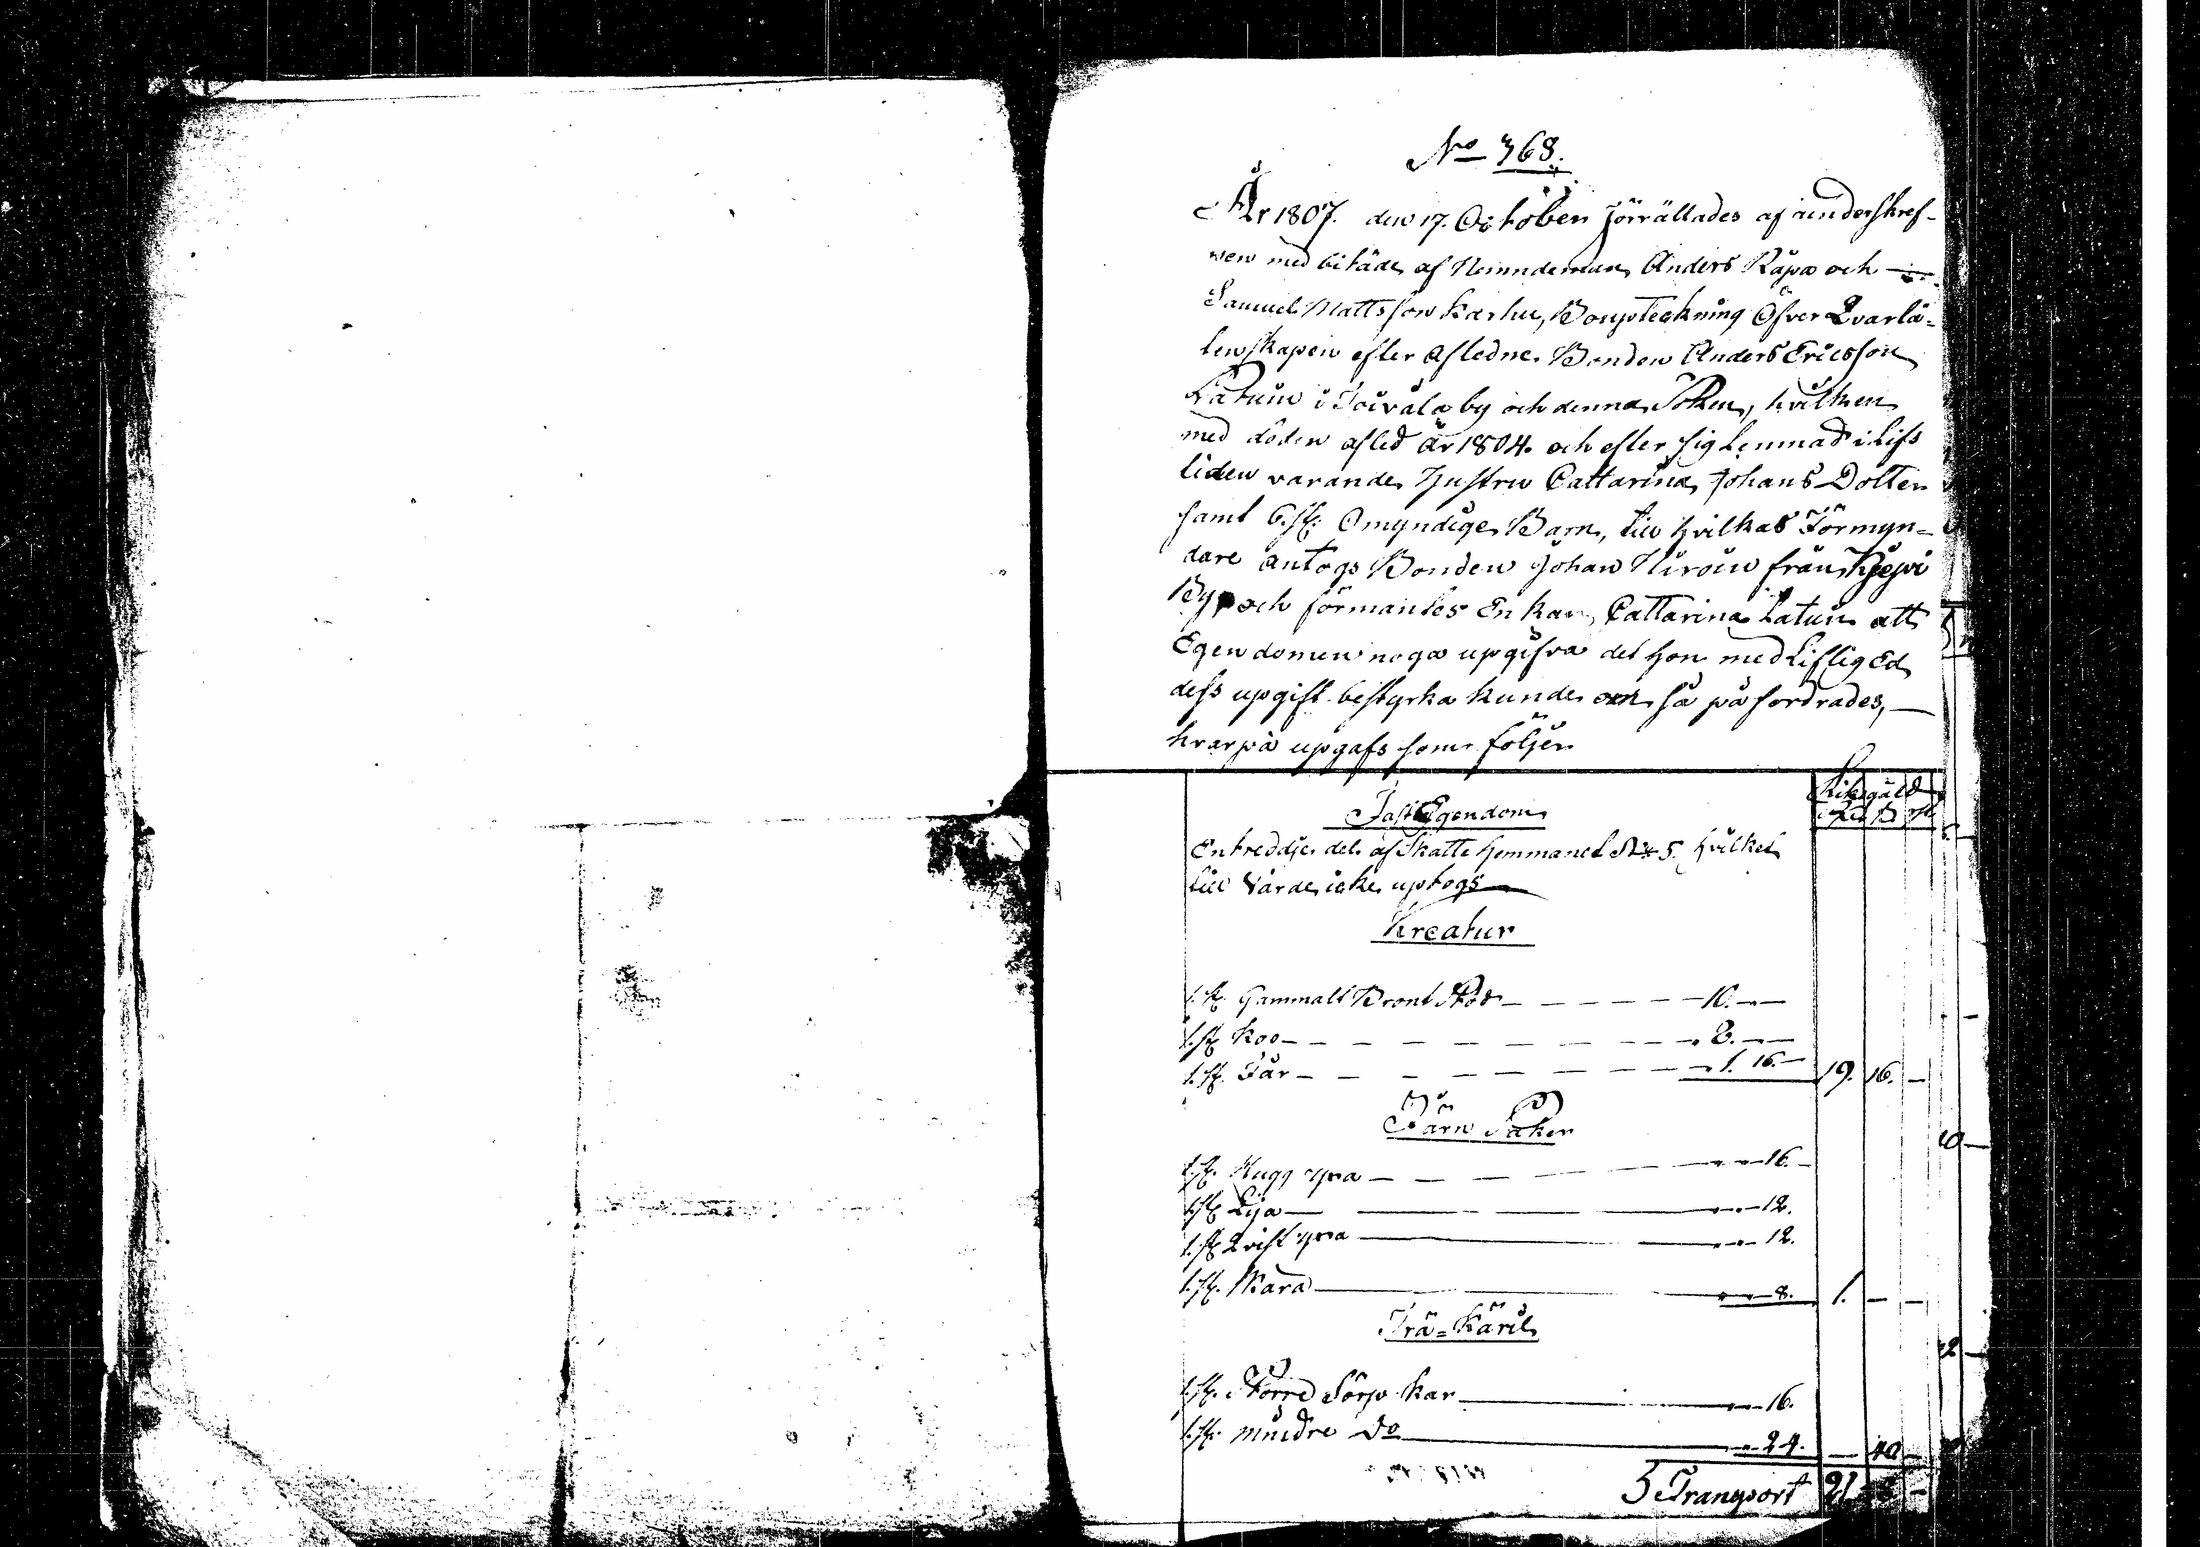 No 368.
År 1807. den 17. October förrättades af underskref-
wen med biträde af Nemndeman Anders Räpa och
Samuel Mattsson Karhu, Boupteckning Öfver Qvarlå-
tenskapen efter afledne Bonden Anders Ericsson
Latuin i Toivala by och denna Soken, hvilken
med döden afled År 1804. och efter sig Lemnad i Lifs
tiden varande Hustru Cattarina Johans Dotter
samt 6. st: Omyndige Barn, till hvilkas Förmyn-
dare antogs Bonden Johan Hiroin från
By och förmantes Enkan Cattarina Latuin att
Egendomen noga upgifva det hon med Liflig Ed
dess upgift bestyrka kunde om så påfordrades,
hvarpå upgafs som följer
Riksgäld
Rd ß rst
Fast Egendom
En tredje del af Skatte Hemmanet No 5. hvilket
till Värde icke uptogs
Kreatur
1. st. Gammalt Bront Stod — 10. —
1. st. Koo — 8. —
1. st. Får — 1. 16. — 19. 16. —
Järn Saker
1. st. Hugg yxa — 16. —
1. st. Lija — 12.
1. st. Qvist yxa — 12.
1. st. Skära — 8. 1. — —
Trä-Käril
1. st. Större Sörp kar — 16.
1. st. mindre Do — 24. — 40 —
Transport 21